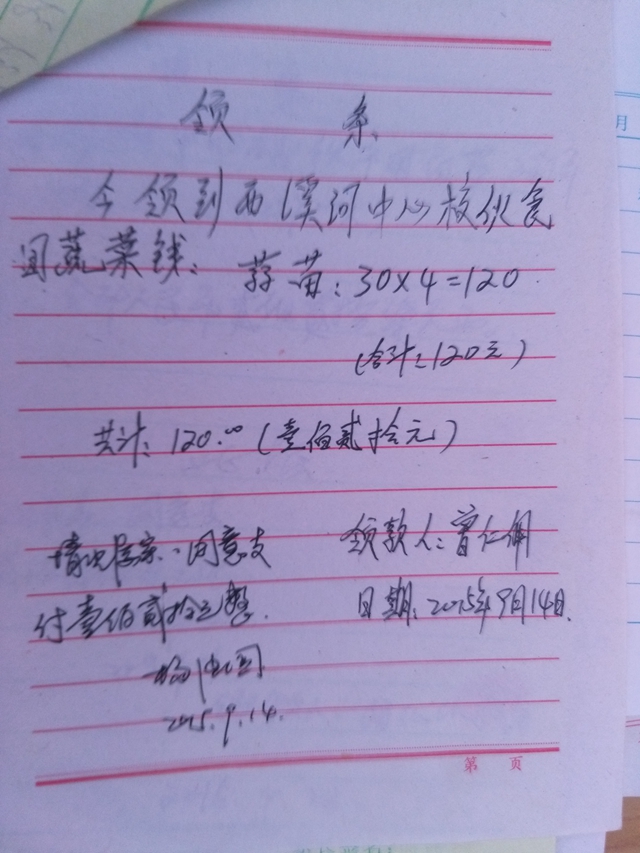 领 条
今领到西溪河中心校伙食
团蔬菜钱：蒜苗：30×4=120
（合计：120元）
共计：120.00（壹佰贰拾元）
情况属实，同意支
付壹佰贰拾元整
2015.9.14.
领款人：曾仁俩
日期：2015年9月14日.
第 页
月